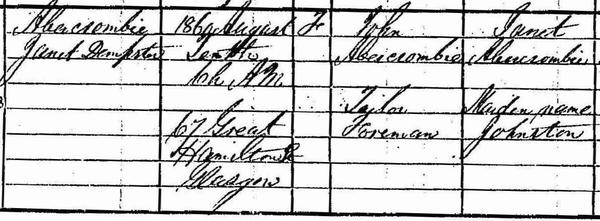 Abercrombie
Janet Dempster
1860 August
Tenth
6h AM
67 Great
Hamilton St
Glasgow
F
John
Abercrombie
Tailor
Foreman
Janet
Abercrombie
Maiden name
Johnston